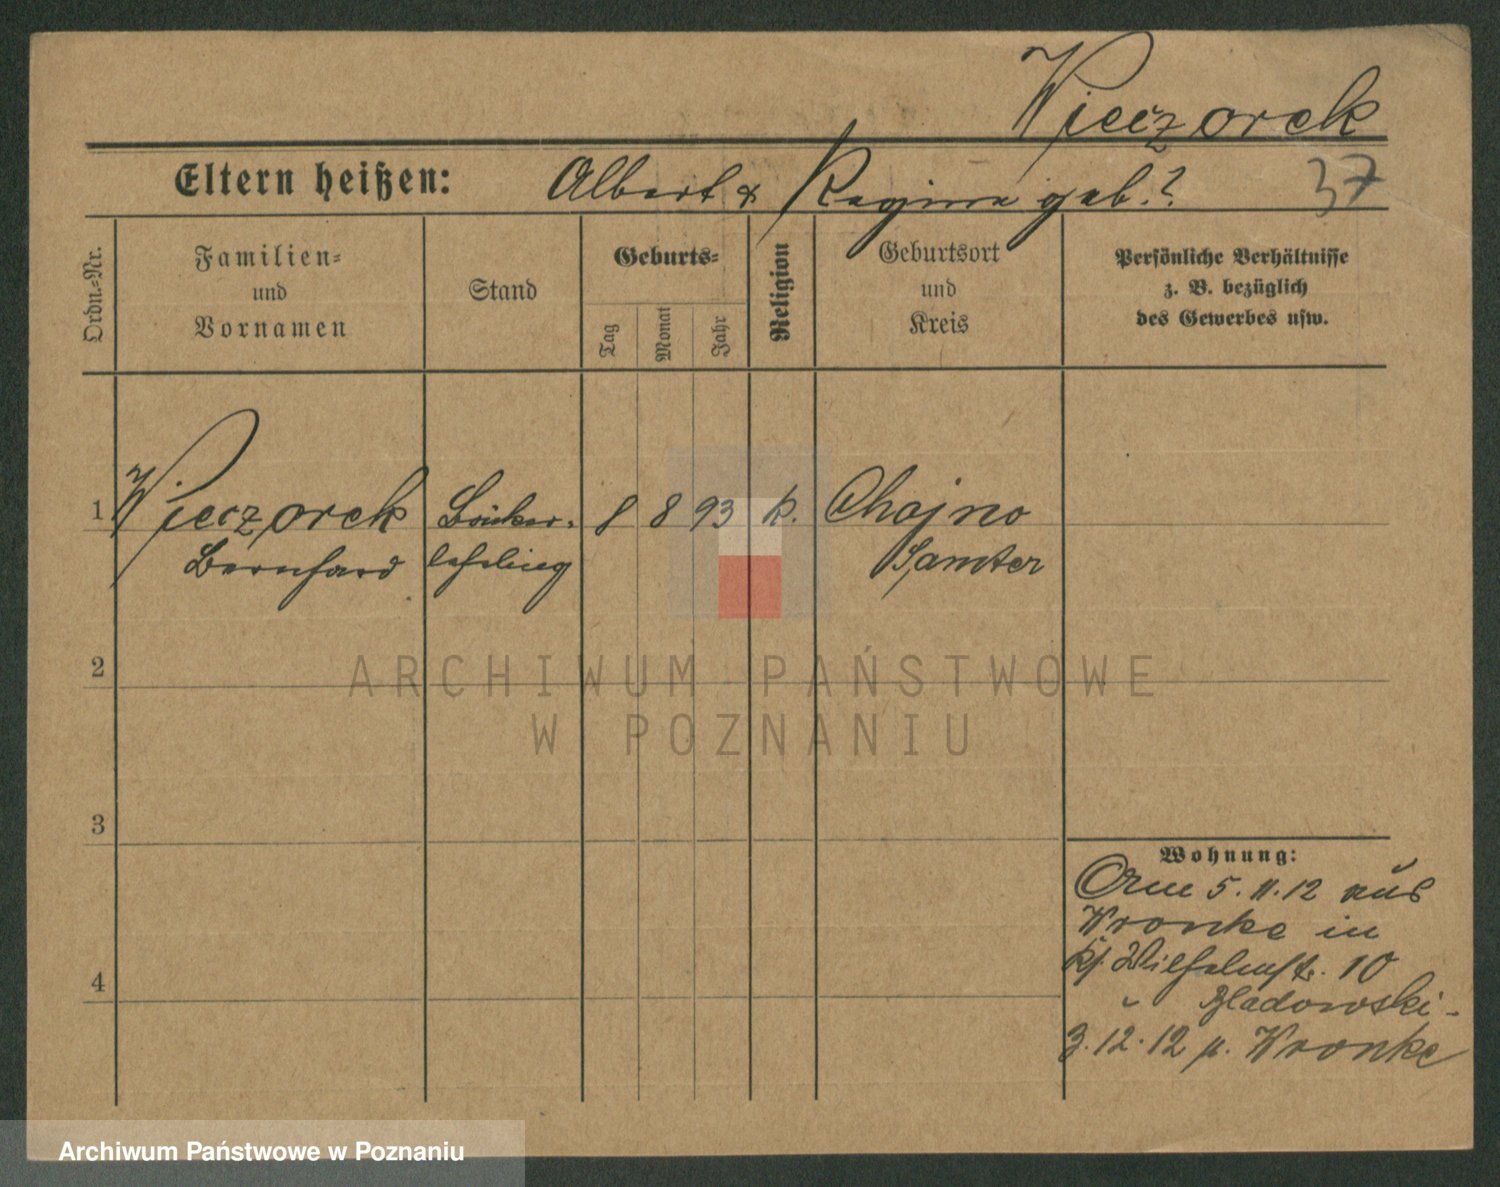 Wieczorek
Eltern heißen: Albert & Regina geb.? 37
Ordn.-Nr.
Familien-
und
Vornamen
Stand
Geburts-
Tag
Monat
Jahr
Religion
Geburtsort
und
Kreis
Persönliche Verhältnisse
z. B. bezüglich
des Gewerbes usw.
1 Wieczorek Bäcker- 8 8 93 k. Chojno
Bernhard lehrling Samter
2
ARCHIWUM PAŃSTWOWE
W POZNANIU
3
Wohnung:
5.11.12 aus
Wronke in
Wilhelmstr. 10
4
3.12.12 n. Wronke
Archiwum Państwowe w Poznaniu